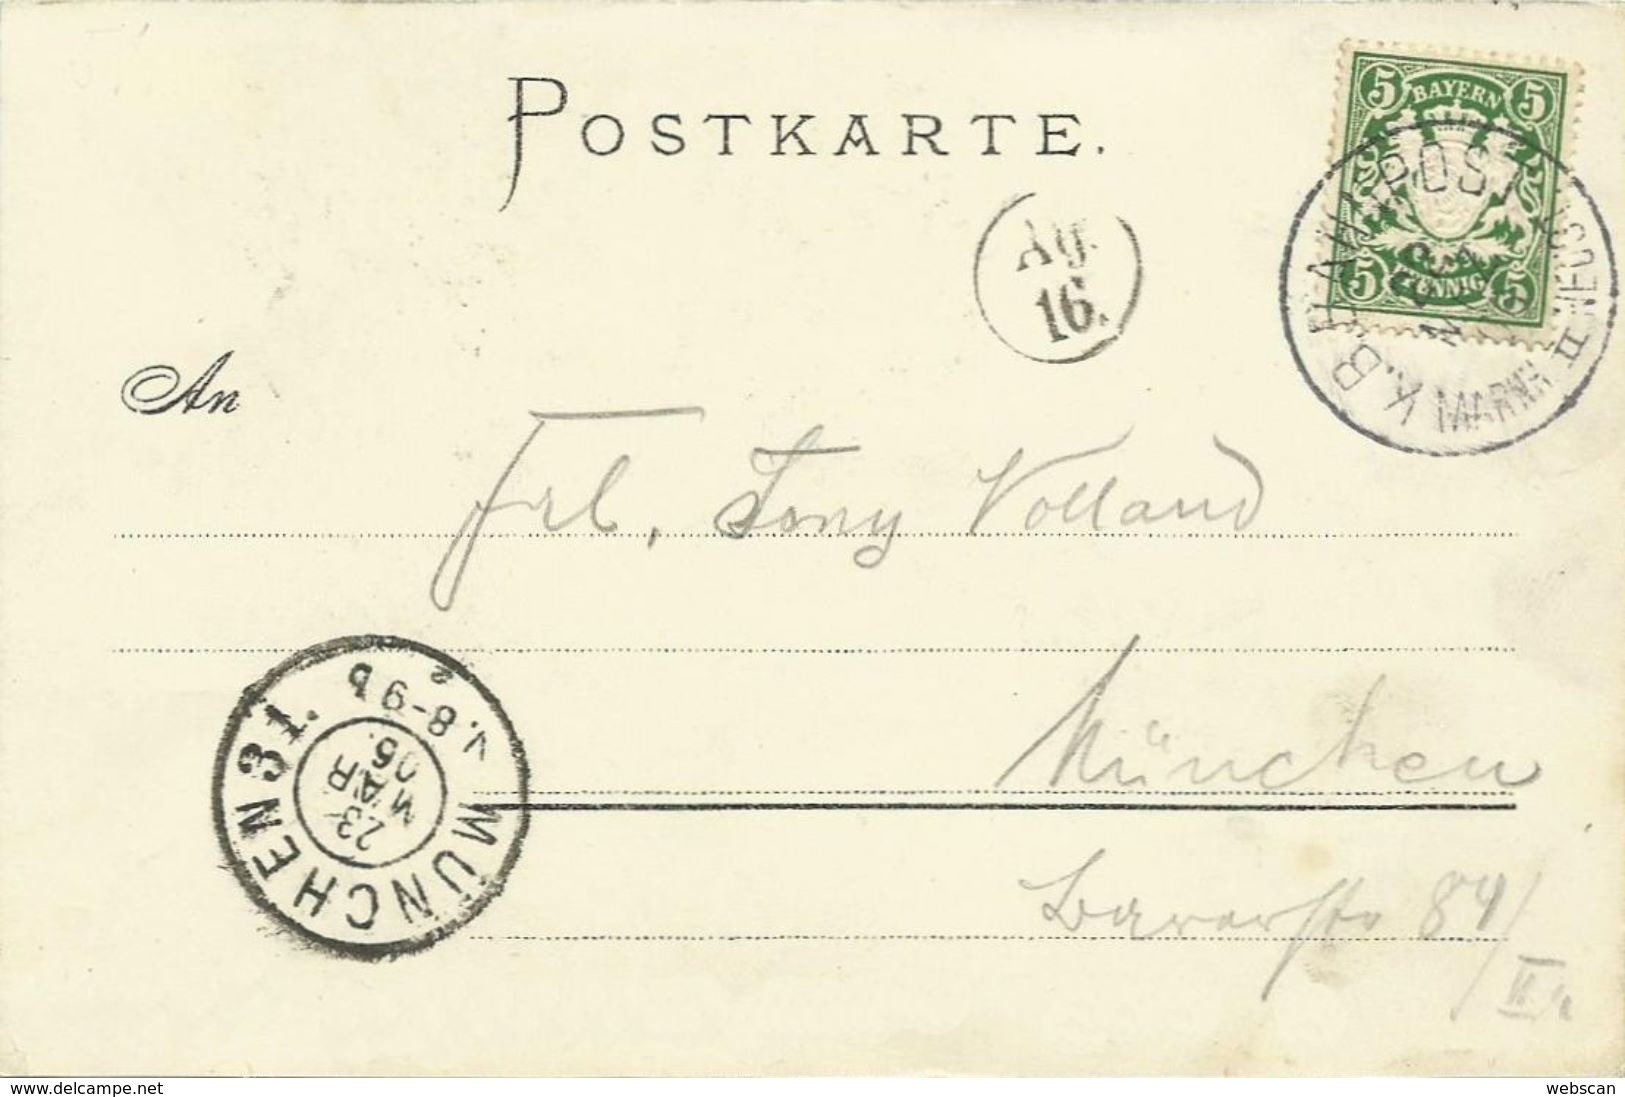 POSTKARTE.
5 BAYERN 5
5 PFENNIG 5
K.B. BAHNPOST
II
Ag.
16.
An
Frl. Tony Volland
München
Barerstr 84/
II
MÜNCHEN 31.
V. 8-9 b
23
MAR
05.
www.delcampe.net
webscan